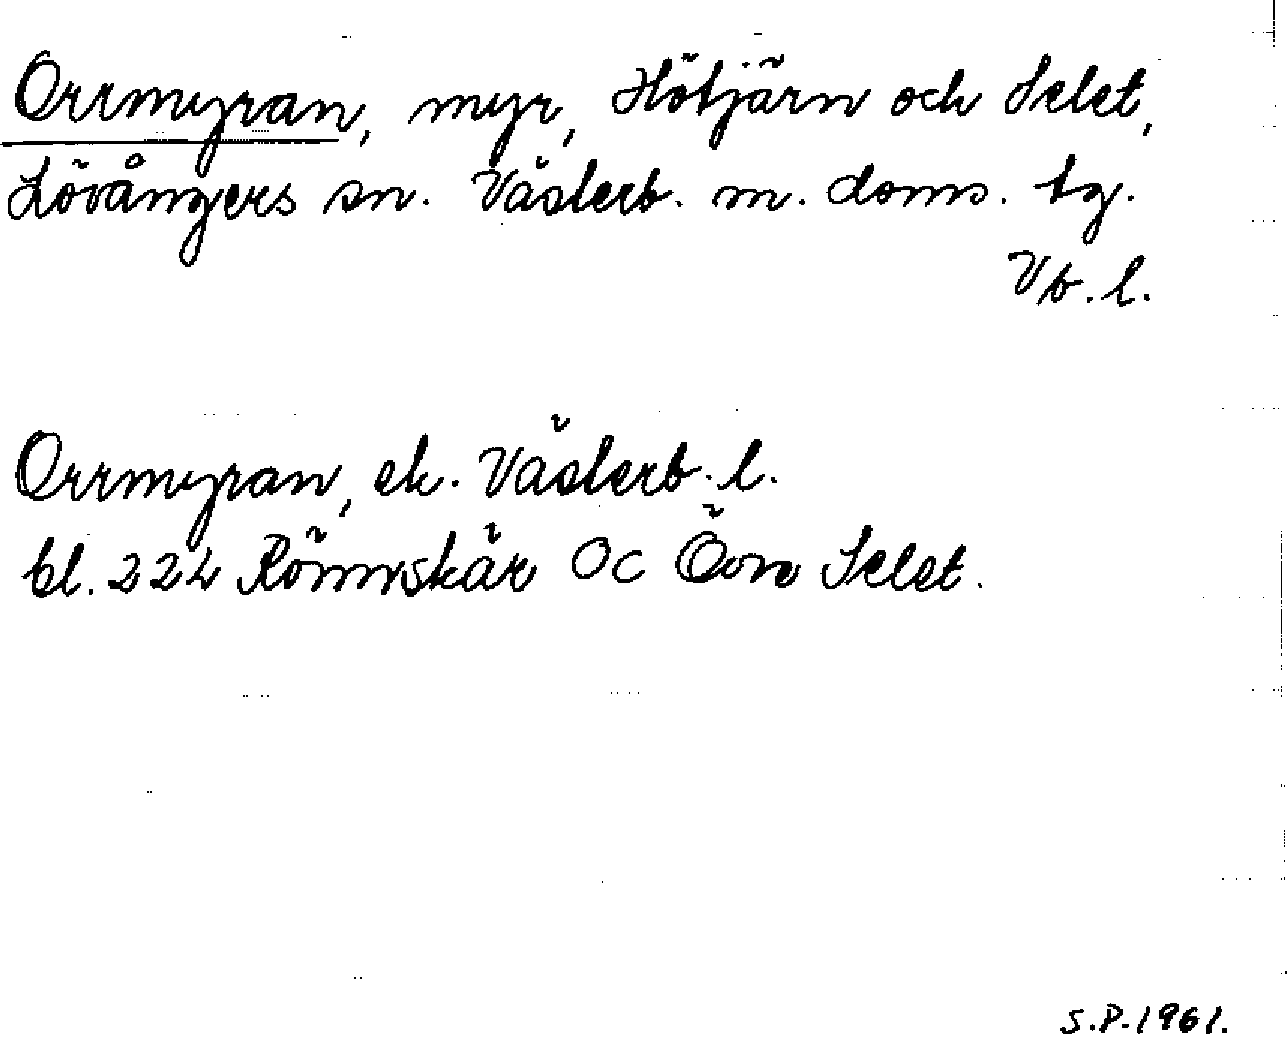 Orrmyran, myr, Hötjärn och Selet,
Lövångers sn. Västerb. m. doms. tg.
Vb. l.
Orrmyran, ek. Västerb. l.
bl. 224 Rönnskär OC Övre Selet.
S.P. 1961.